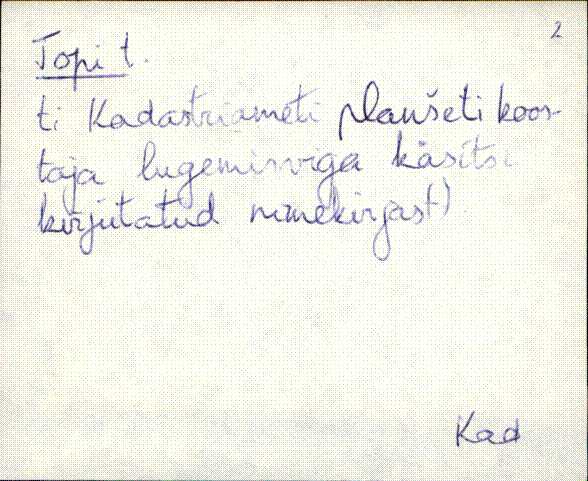 2
Topi t.
t. Kadastriameti planšeti koos-
taja lugemisviga käsitsi
kirjutatud nimekirjast)
Kad